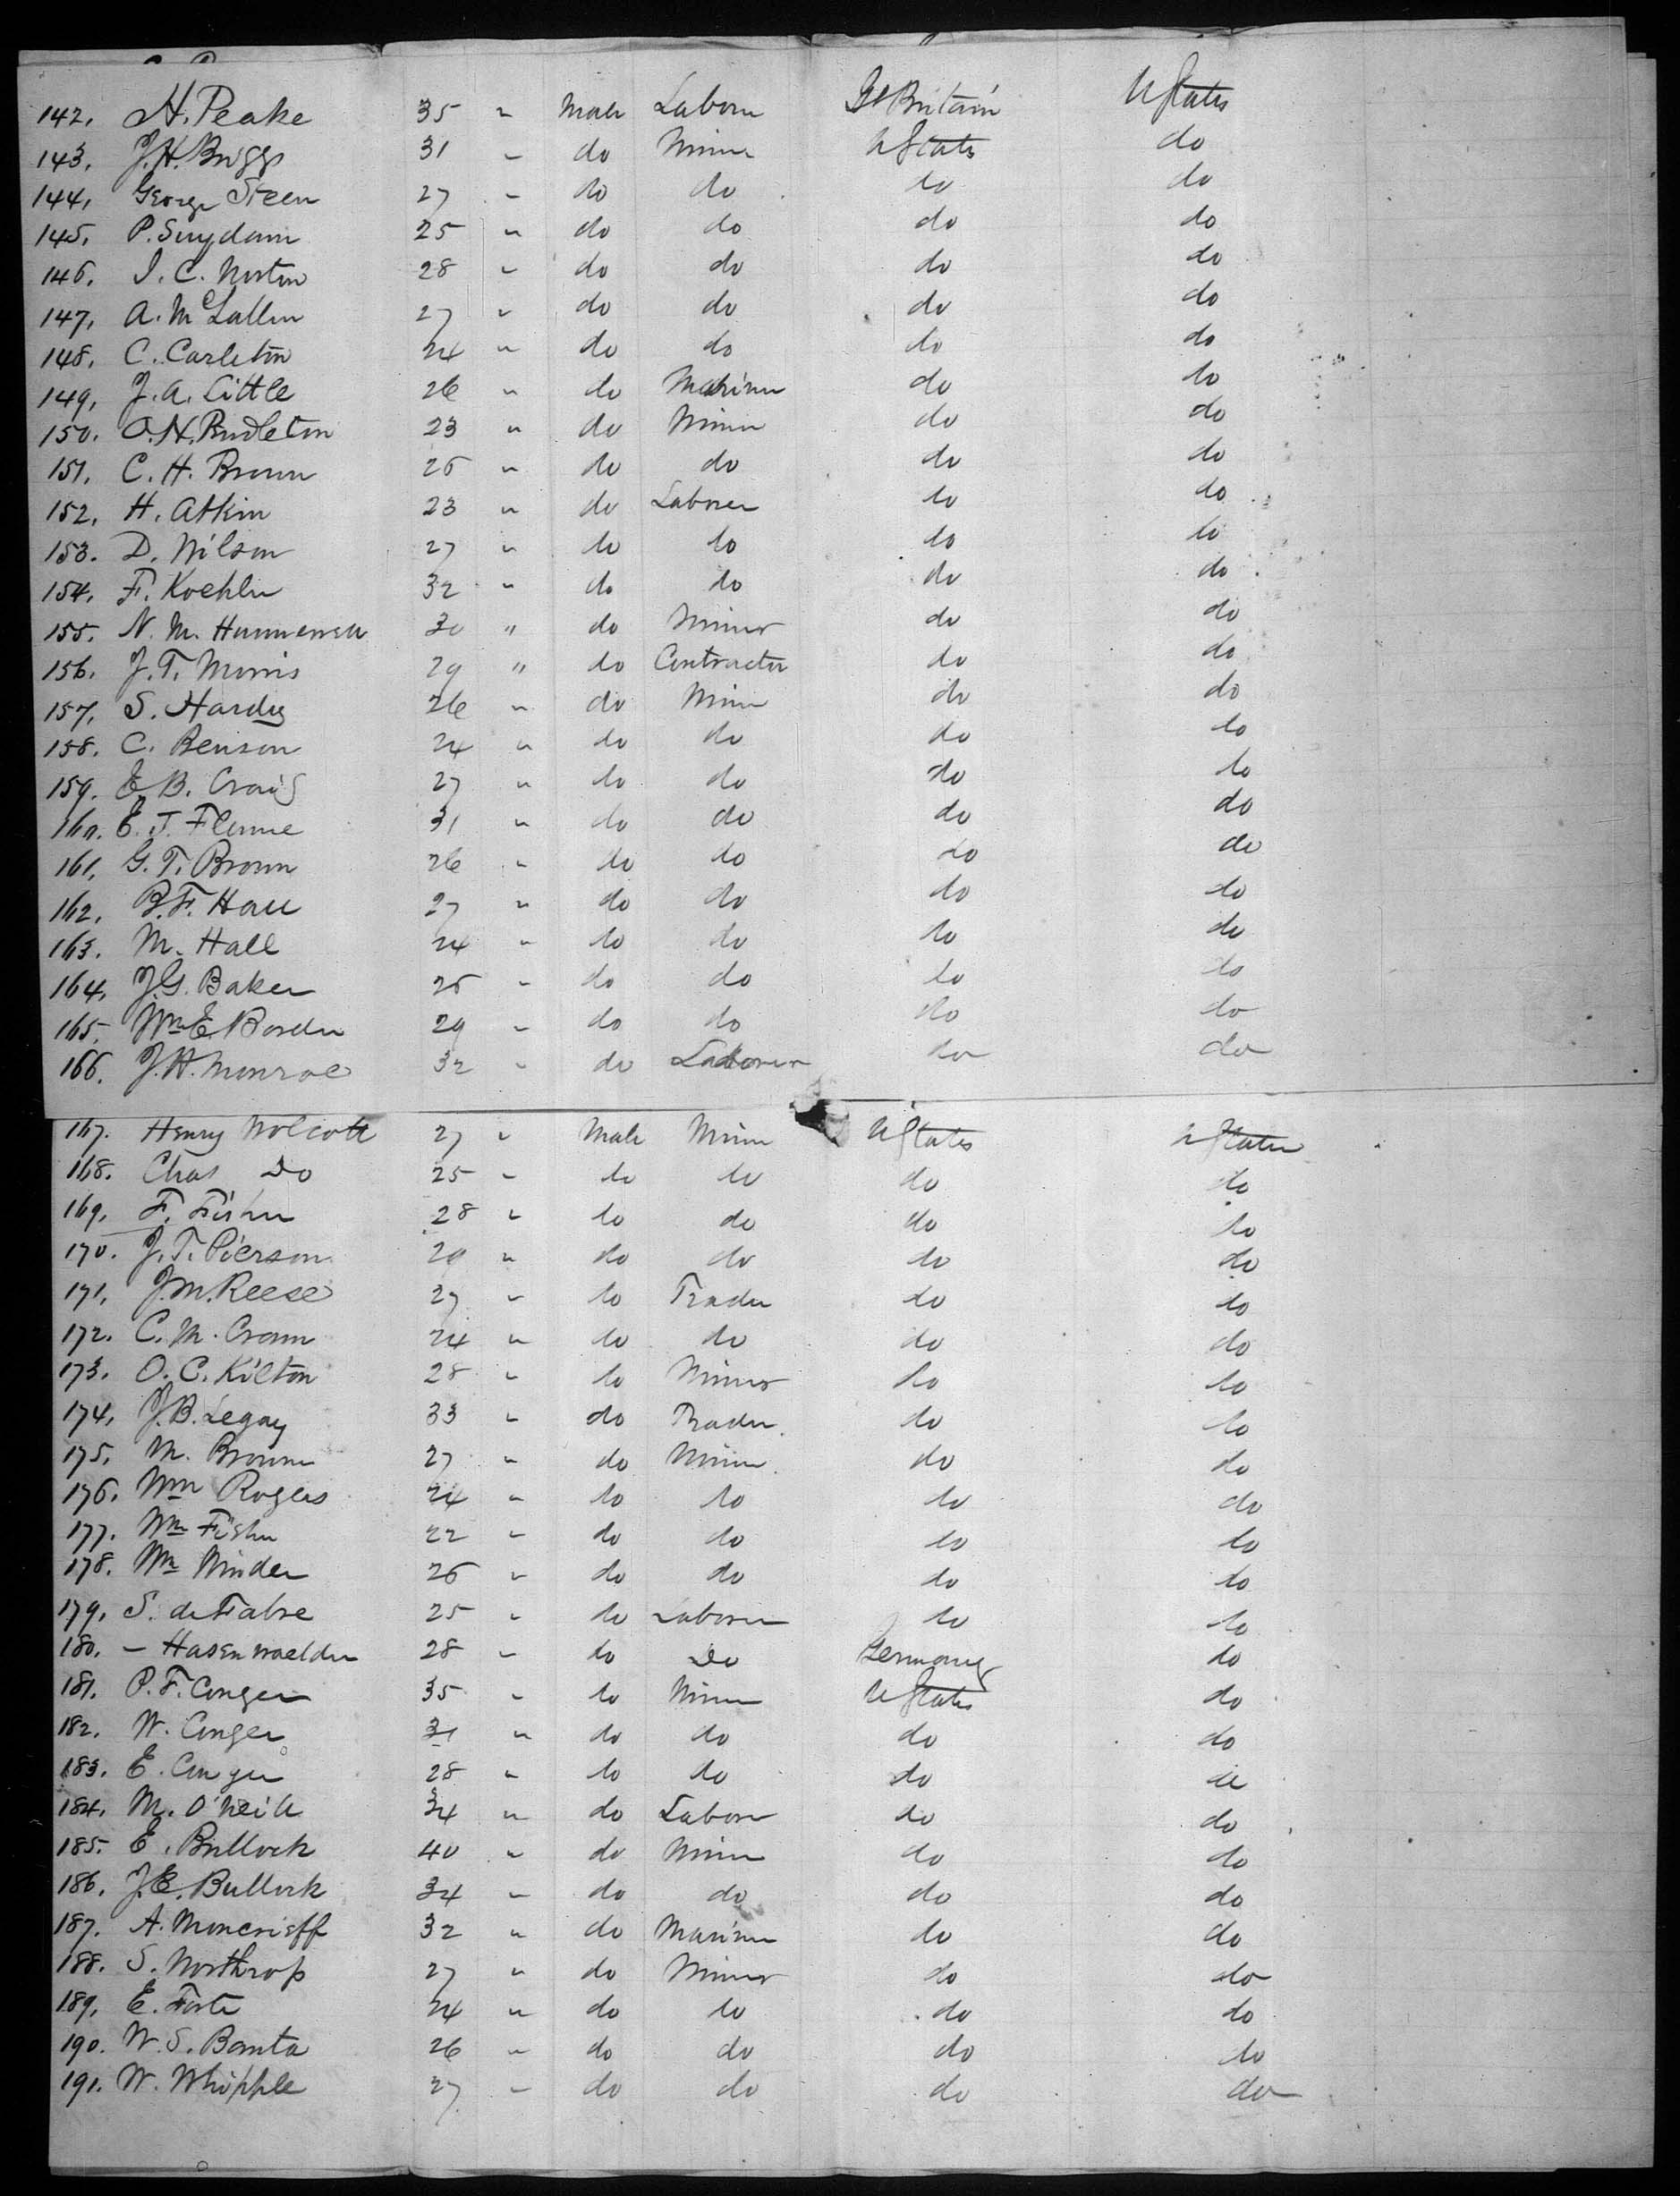 142. H. Peake 35 " Male Laborer Gt Britain U States
143. J. H. Briggs 31 " do Miner U States do
144. George Steen 27 " do do do do
145. P. Suydam 25 " do do do do
146. I. C. Norton 28 " do do do do
147. A. McLallen 27 " do do do do
148. C. Carleton 24 " do do do do
149. J. A. Little 26 " do Mariner do do
150. O. H. Pendleton 23 " do Miner do do
151. C. H. Brown 25 " do do do do
152. H. Atkin 23 " do Laborer do do
153. D. Wilson 27 " do do do do
154. F. Koehler 32 " do do do do
155. N. M. Hunnewell 30 " do Miner do do
156. J. T. Morris 29 " do Contractor do do
157. S. Hardy 26 " do Miner do do
158. C. Benson 24 " do do do do
159. E. B. Craig 27 " do do do do
160. E. J. 31 " do do do do
161. G. T. Brown 26 " do do do do
162. B. F. Hall 27 " do do do do
163. M. Hall 24 " do do do do
164. J. G. Baker 25 " do do do do
165. Wm E. Borden 29 " do do do do
166. J. H. Monroe 32 " do Laborer do do
167. Henry Wolcott 27 " Male Miner U States U States
168. Chas Do 25 " do do do do
169. F. Fisher 28 " do do do do
170. J. T. Pierson 29 " do do do do
171. J. M. Reese 27 " do Trader do do
172. C. M. Cram 24 " do do do do
173. O. C. Kilton 28 " do Miner do do
174. J. B. Legay 33 " do Trader do do
175. M. Brown 27 " do Miner do do
176. Wm Rogers 24 " do do do do
177. Wm Fisher 22 " do do do do
178. Wm Winder 26 " do do do do
179. S. de Fabre 25 " do Laborer do do
180. – Hasenwaelder 28 " do Do Germany do
181. P. F. Conger 35 " do Miner U States do
182. W. Conger 31 " do do do do
183. E. Conger 28 " do do do do
184. M. O'Neill 34 " do Laborer do do
185. E. Bullock 40 " do Miner do do
186. J. E. Bullock 34 " do do do do
187. A. Moncrieff 32 " do Mariner do do
188. S. Northrop 27 " do Miner do do
189. E. Foster 24 " do do do do
190. W. S. Banta 26 " do do do do
191. W. Whipple 27 " do do do do